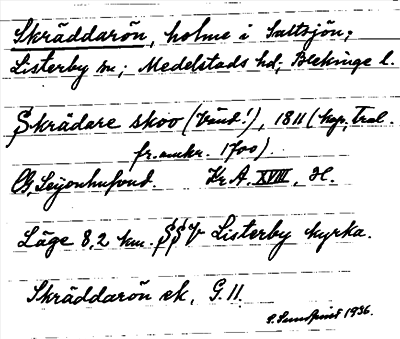 Skräddarön, holme i Saltsjön,
Listerby sn; Medelstads hd; Blekinge l.
Skrädare skoo (Vänd!), 1811 (kop. Tral.
fr. omkr. 1700).
G. Leijonhufvud. Kr A. XVIII, H.
Läge 8,2 km. SSV Listerby kyrka.
Skräddarön ek, G. 11.
1936.